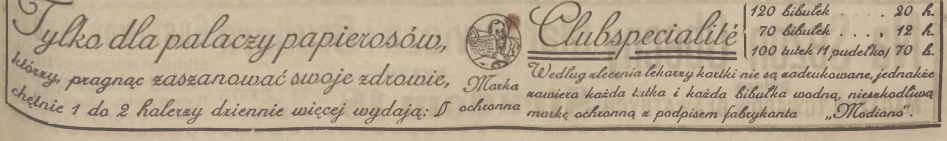 Tylko dla palaczy papierosów,
którzy, pragnąc zaszanować swoje zdrowie,
chętnie 1 do 2 halerzy dziennie więcej wydają:
Marka
ochronna
Clubspecialité
120 bibułek . . . . 20 h.
70 bibułek . . . . 12 h.
100 tutek (1 pudełko) 70 h.
Według zlecenia lekarzy kartki nie są zadrukowane, jednakże
zawiera każda tutka i każda bibułka wodną, nieszkodliwą
markę ochronną z podpisem fabrykanta „Modiano".